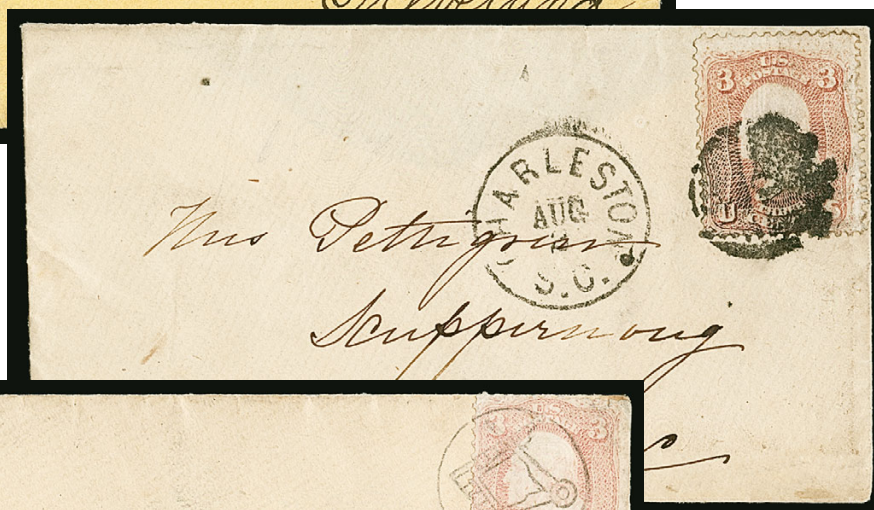 3 U.S. 3
POSTAGE
CHARLESTON
AUG
S.C.
U S
Miss Pettigrew
Scuppernong
C
U.S.
3 3